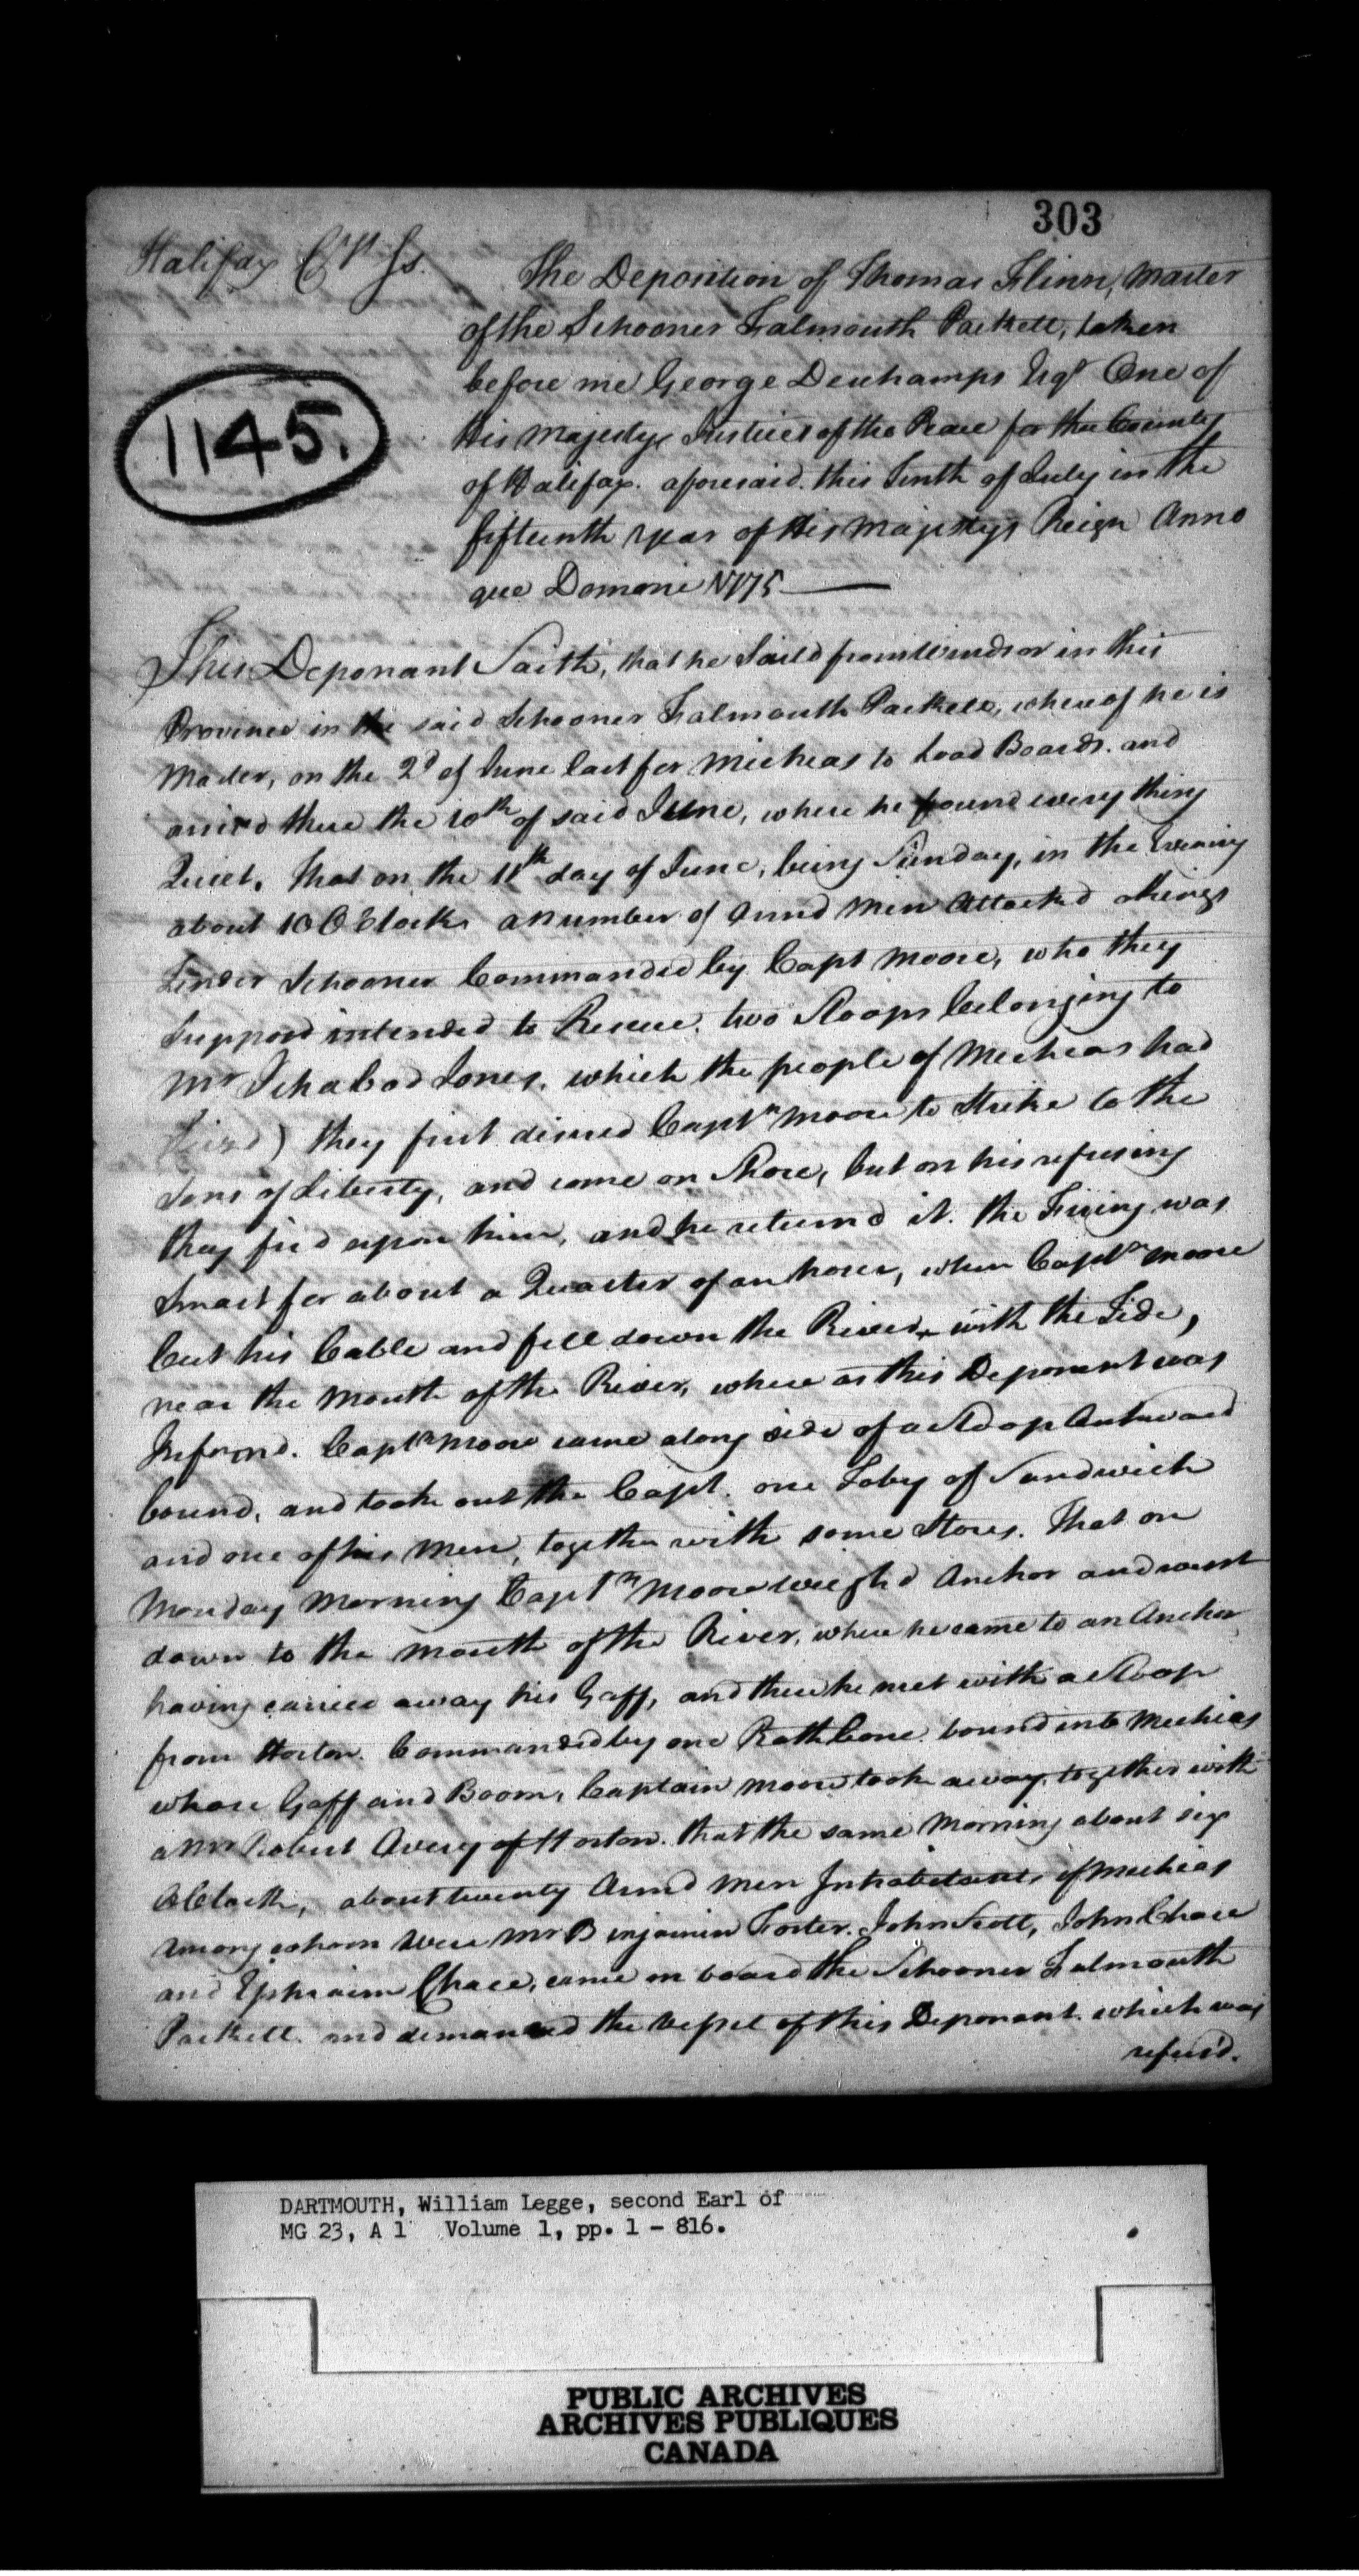 303
Halifax Cty Ss.
1145.
The Deposition of Thomas Flinn, Master
of the Schooner Falmouth Packett, taken
before me George Deschamps Esqr One of
His Majestys Justices of the Peace for the County
of Halifax. aforesaid. this Tenth of July in the
fifteenth year of His Majestys Reign Anno
que Domoni 1775
This Deponant Saith, that he Saild from Windsor in this
Province in the said Schooner Falmouth Packett, where of he is
Master, on the 2d of June last for Mechias to Load Boards. and
arrivd there the 10th of said June, where he found every thing
Quiet. that on the 11th day of June, being Sunday, in the Evening
about 10 OClock a number of Armd Men Attacked
Tender Schooner Commanded by Capt Moore, who they
Supposd intended to Rescue two Sloops belonging to
Mr Ichabod Jones. which the people of Mechias had
) they first desired Captn Moore to Strike to the
Sons of Liberty, and come on Shore, but on his refusing
they fird upon him, and he returnd it. the Firing was
Smart for about a Quarter of an hour, when Captn Moore
Cut his Cable and fell down the River with the Tide,
near the Mouth of the River, where as this Deponent was
Informd. Captn Moore came along side of a Sloop Outward
bound, and took out the Capt. one Toby of Sandwich
and one of his Men, together with some Stores. That on
Monday Morning Captn Moore weighd Anchor and went
down to the mouth of the River, where he came to an Anchor
having carried away his Gaff, and there he met with a Sloop
from Horton. Commanded by one Rathbone. bound into Mechias
whose Gaff and Boom, Captain Moore took away, together with
a Mr Robert Avery of Horton. that the same Morning about six
OClock, about twenty Armd Men Inhabitants of Mechias
Among whom were Mr Binjamin Foster. John Scott, John Chace
and Ephraim Chace, came on board the Schooner Falmouth
Packett. and demanded the Vessel of this Deponant. which was
refus'd.
DARTMOUTH, William Legge, second Earl of
MG 23, A 1 Volume 1, pp. 1 - 816.
PUBLIC ARCHIVES
ARCHIVES PUBLIQUES
CANADA